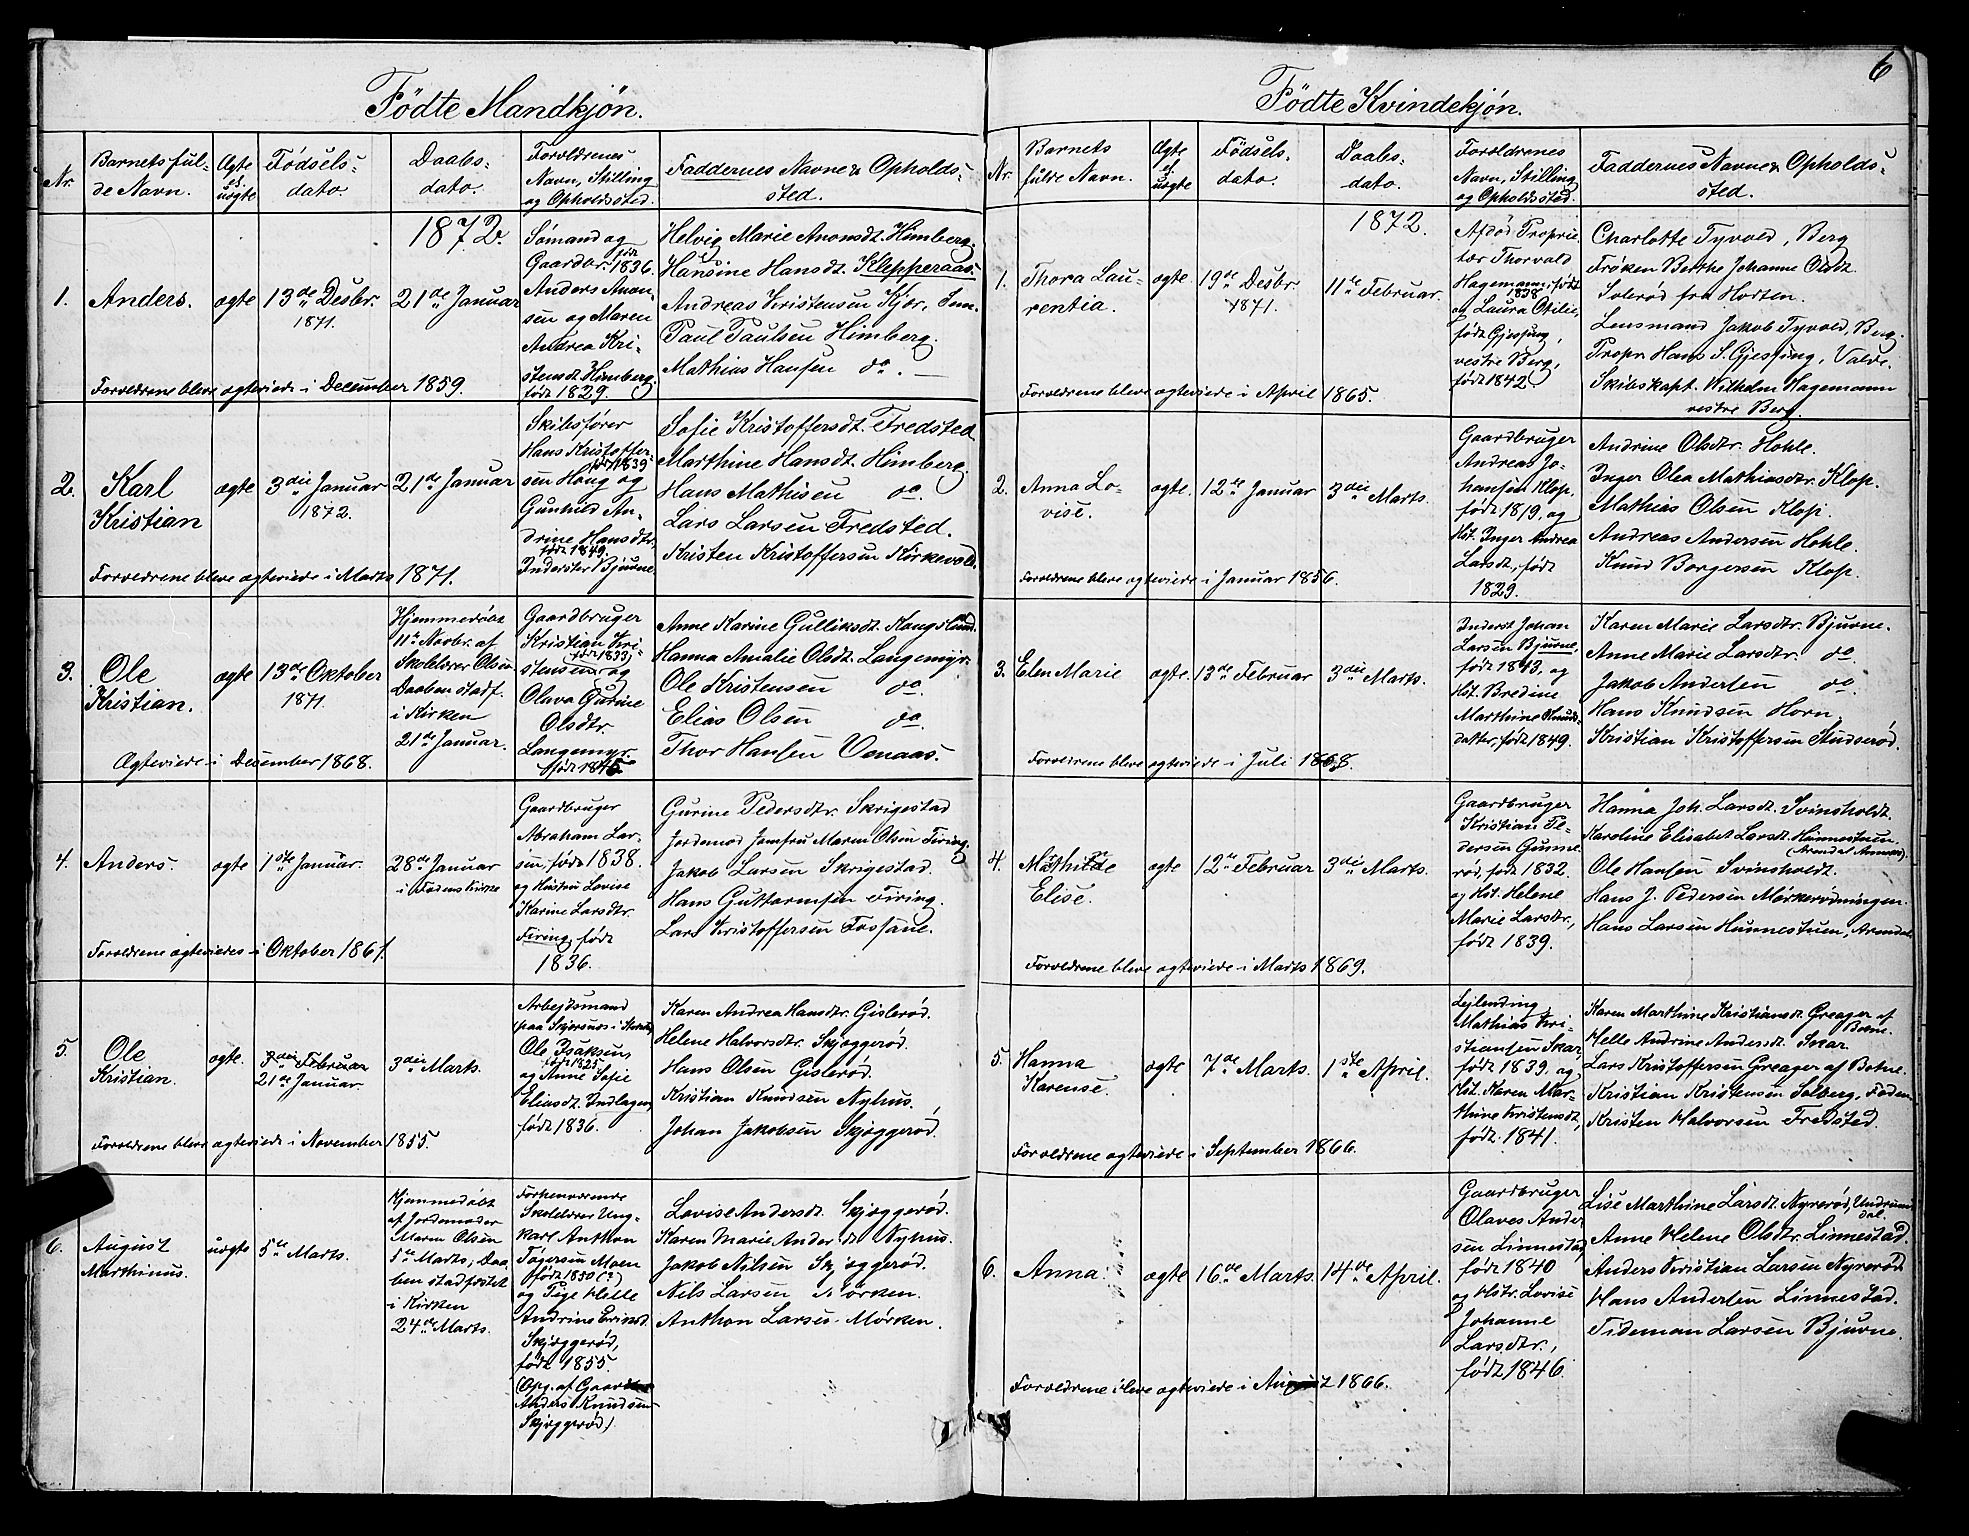 6
Fødte Mandkjøn.
Nr.
Barnets ful-
de Navn.
Ægte
el.
uægte
Fødsels-
dato.
Daabs-
dato.
Forældrenes
Navn, Stilling
og Opholdssted.
Faddernes Navne & Opholds-
sted.
1872.
1.
Anders.
ægte
13de Desbr.
1871.
21de Januar
Sømand og
Gaardbr. født 1836.
Anders Anon-
sen og Maren
Andrea Kri-
stensdt. Himberg,
født 1829.
Helvig Marie Anonsdt. Himberg.
Hansine Hansdt. Klepperaas.
Andreas Kristensen Kjær, Sem.
Paul Paulsen Himberg.
Mathias Hansen do.
Forældrene bleve ægteviede i December 1859.
2.
Karl
Kristian
ægte
3die Januar
1872.
21de Januar
Skibsfører
Hans Kristoffer-
født 1839
sen Haug og
Gunhild An-
drine Hansdtr.
født 1849.
Inderster Bjuune.
Sofie Kristoffersdt. Fredsted
Marthine Hansdt. Himberg.
Hans Mathisen do.
Lars Larsen Fredsted.
Kristen Kristoffersen Kirkevold.
Forældrene bleve ægteviede i Marts 1871.
3.
Ole
Kristian.
ægte
13de Oktober
1871.
Hjemmedøbt
11te Novbr. af
Skolelærer Olsen
Daaben stadf.
i Kirken
21de Januar.
Gaardbruger
Kristian Kri-
(født 1833)
stensen og
Olava Gurine
Olsdtr.
Langemyr.
født 1845
Anne Karine Gulliksdt. Haugslund.
Hanna Amalie Olsdt. Langemyr.
Ole Kristensen do.
Elias Olsen do.
Thor Hansen Venaas.
Ægteviede i December 1868.
4.
Anders.
ægte
1ste Januar.
28de Januar
i Fodens Kirke
Gaardbruger
Abraham Lar-
sen, født 1838.
og Hustru Lovise
Karine Larsdtr.
Firing, født
1836.
Gurine Pedersdtr. Skrigestad
Jordemod. Jomfru Maren Olsen Firing.
Jakob Larsen Skrigestad.
Hans Guttormsen Firing.
Lars Kristoffersen Fossane.
Forældrene ægteviedes i Oktober 1861.
5.
Ole
Kristian.
ægte.
3die Februar
21de Januar.
3die Marts.
Arbejdsmand
Ole Isaksen,
født 1825
og Anne Sofie
Eliasdt. Indlagen,
født 1836.
Karen Andrea Hansdtr. Gislerød.
Helene Halvorsdtr. Skjæggerød.
Hans Olsen Gislerød.
Kristian Knudsen Nyhus.
Johan Jakobsen Skjæggerød.
Forældrene bleve ægteviede i November 1855.
6.
August
Marthinus.
uægte
5te Marts.
Hjemmedøbt
af Jordemoder
Maren Olsen
5te Marts; Daa-
ben stadfæstet
i Kirken
24de Marts.
Forhenværende
Skolelærer Ung-
karl Anthon
Tøgersen Moen
født 1850 (?)
og Pige Helle
Andrine Erinsd.
Skjæggerød,
født 1855.
(Opg. af Gaardbr.
Anders Knudsen
Skjæggerød)
Lovise Andersdt. Skjæggerød.
Karen Marie Andersdt. Nyhus.
Jakob Nilsen Skjæggerød.
Nils Larsen Mörken.
Anthon Larsen Mørken.
Fødte Kvindekjøn.
Nr.
Barnets
fulde Navn.
Ægte
el.
uægte
Fødsels-
dato.
Daabs-
dato.
Forældrenes
Navn, Stilling
og Opholdssted.
Faddernes Navne & Opholds-
sted.
1872.
1.
Thora Lau-
rentia.
ægte.
19de Desbr.
1871.
11te Februar.
Afdød Proprie-
tær Thorvald
Hagemann, født
1838
og Laura Otilie,
født Gjessing,
vestre Berg,
født 1842
Charlotte Tyvold, Berg
Frøken Berthe Johanne Oldt.
Solerød fra Horten.
Lensmand Jakob Tyvold, Berg.
Propr. Hans S. Gjessing, Valde.
Skibskapt. Wilhelm Hagemann
vestre Berg.
Forældrene bleve ægteviede i April 1865.
2.
Anna Lo-
vise.
ægte.
12te Januar
3die Marts.
Gaardbruger
Andreas Jo-
hansen Klop,
født 1819, og
Hst. Inger Andrea
Larsdt, født
1829.
Andrine Olsdtr. Hohle.
Inger Olea Mathiasdtr. Klop.
Mathias Olsen Klop.
Andreas Andersen Hohle.
Knud Borgersen Klop.
Forældrene bleve ægteviede i Januar 1856.
3.
Elen Marie
ægte.
13de Februar
3die Marts.
Inderst Johan
Larsen Bjuune,
født 1843, og
Hst. Bredine
Marthine Knuds-
datter, født 1849.
Karen Marie Larsdtr. Bjuvne.
Anne Marie Larsdtr. do.
Jakob Andersen do.
Hans Knudsen Horn.
Kristian Kristoffersen Hudserød.
Forældrene bleve ægteviede i Juli 1868.
4.
Mathilde
Elise.
ægte
12te Februar
3die Marts.
Gaardbruger
Kristian Pe-
dersen Gunne-
rød, født 1832.
og Hst. Helene
Marie Larsdtr,
født 1839.
Hanna Joh. Larsdt. Svinsholdt.
Karoline Elisabet Larsdt. Hunnestuen
Ole Hansen Svinsholdt.
Hans J. Pedersen Mørkerødningen.
Hans Larsen Hunnestuen, Arendal.
Forældrene bleve ægteviede i Marts 1869.
5.
Hanna
Karense.
ægte
7de Marts.
1ste April.
Lejlending
Mathias Kri-
stiansen Skar,
født 1839. og
Hst. Karen Mar-
thine Kristensdt,
født 1841.
Karen Marthine Kristiansdt. Greager af
Botne.
Helle Andrine Andersdt. Skar.
Lars Kristoffersen Greager af Botne.
Kristian Kristensen Solberg, Foden
Kristen Halvorsen Fredsted.
Forældrene ægteviede i September 1866.
6.
Anna.
ægte
16de Marts.
14de April.
Gaardbruger
Olaves Ander-
sen Linnestad,
født 1840
og Hstr. Lovise
Johanne
Larsdtr.,
født 1846.
Lise Marthine Larsdt. Nyrerød, Undrums-
dal.
Anne Helene Olsdtr. Linnestad.
Anders Kristian Larsen Nyrerød
Hans Andersen Linnestad.
Tideman Larsen Bjuvne.
Forældrene bleve ægteviede i August 1866.